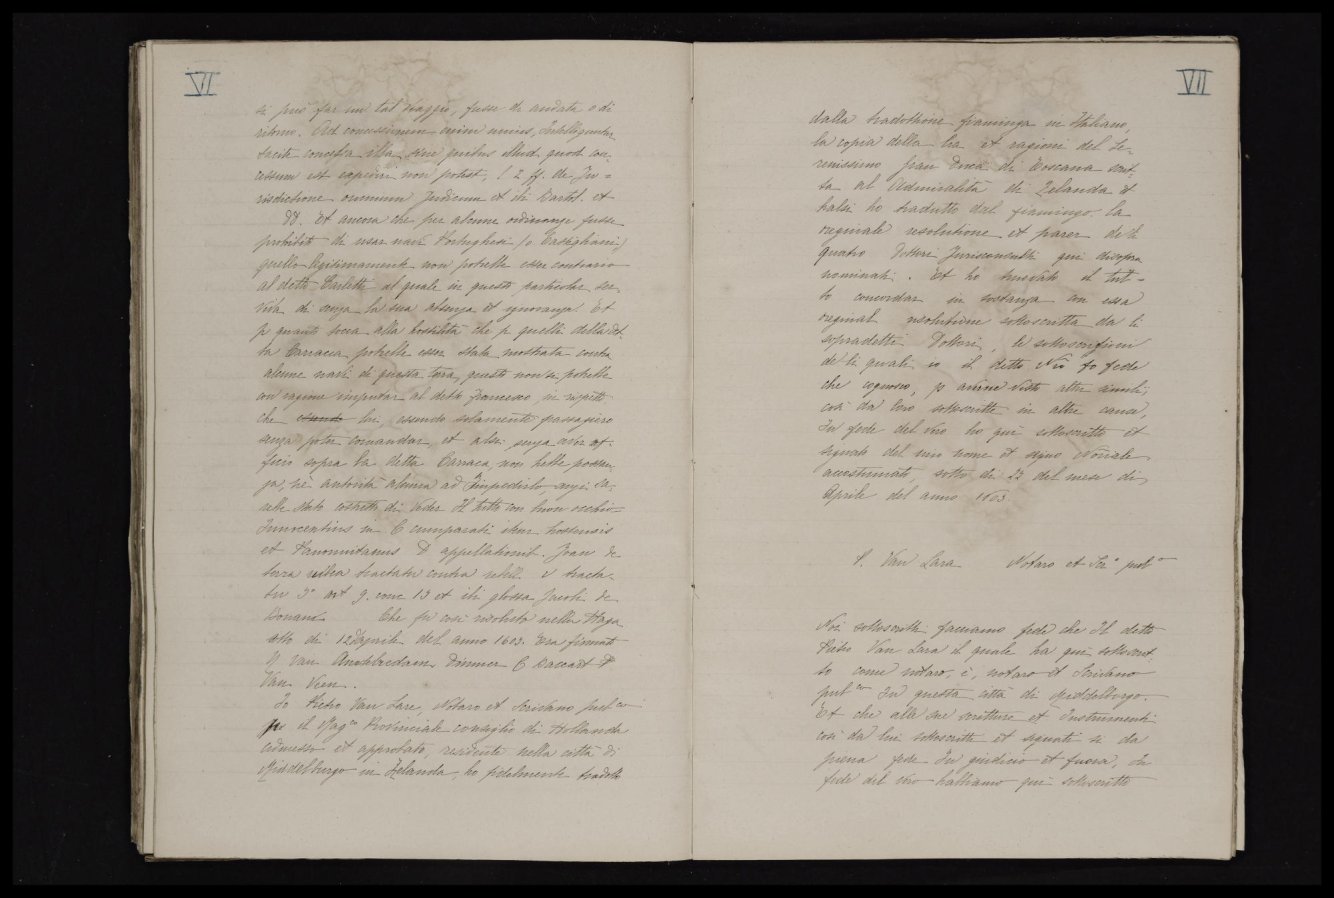 VI
si può far un tal viaggio, fusse de andata o di
ritorno. Ad concessionem enim unius, Intelliguntur
tacita concessa illa sine quibus illud quod con,
cessum est expediri non potest, l 2 ff. de Ju=
risdictione omnium Judicum et ibi Bartol. et
DD. Et ancora che per alcune ordinanze fusse
prohibito di usar navi Portughesi /o Castigliani/
quello legitimamente non potrelle esser contrario
al detto Carletti al quale in questo particolar ser,
virla di scuza la sua absenza et ignoranza. Et
p quanto tocca alla hostilità che p quelli della det.
ta Carraca potrelle esser stata mostrata contra
alcune navi di questa terra, questo non si potrelle
con ragione imputar al detto Francesco, in rispetto
che essendo lui, essendo solamente passagiero
senza poter comandar, et alsi senza aver of
ficio sopra la detta Carraca, non hebbe possan
za, nè autorità alcuna ad Impedirlo, anzi sa,
relle stato costretto di veder Il tutto con buon occhio=
Innocentius in C cumparati iten hostensis
et Panormitanus D appellationit. Joan de
terra tractatu contra rebell. v tracta.
tu 3° art 9. conc 13 et ibi glossa Jacobi de
Che fu così risoluto nella Haga
alto di 12 daprile del anno 1603. Era firmato
Y van Amsbloedam, C Baccart
Van Veen.
Io Pietro Van Lare, Notaro et Scrivano pub co
p il Mag co Provinciale consiglio di Hollanda
admesso et approbato, residente nella città di
Middelburgo in Zelanda, ho fidelmente tradotto
VII
dalla tradottione framinga in Italiano,
la copia della lra et ragioni del Se,
renissimo gran Duca di Toscana scrit.
ta al Admiralità di Zelanda et
halsi ho tradutto dal fiamingo la
originale resolutione et parer de li
quatro Dottori Jurisconsulti qui disopra
nominati. Et ho trovato il tut=
to concordar in sostanza con essa
original resolutione sottoscritta da li
sopradetti Dottori, le sottoscrizioni
de li quali io il detto No fo fede
che cognosco, p averne visto altre simili,
così da loro sottoscritte in altre cause,
In fede del vero ho qui sottoscritto et
signato del mio nome et signo Noriale
accostumato sotto di 22 del mese di
Aprile del anno 1603

P. Van Lara Notaro et Scr° pub°

Noi sottoscritti facciamo fede che Il detto
Pietro Van Lara il quale ha qui sottoscrit.
to come notaro, è, notaro et Scrivano
pub co In questa città di Middelborgo.
Et che alle sue scritture et Instrumenti
così da lui sottoscritti et signati si da
piena fede In giudicio et fuora, In
fede del vero habbiamo qui sottoscritto